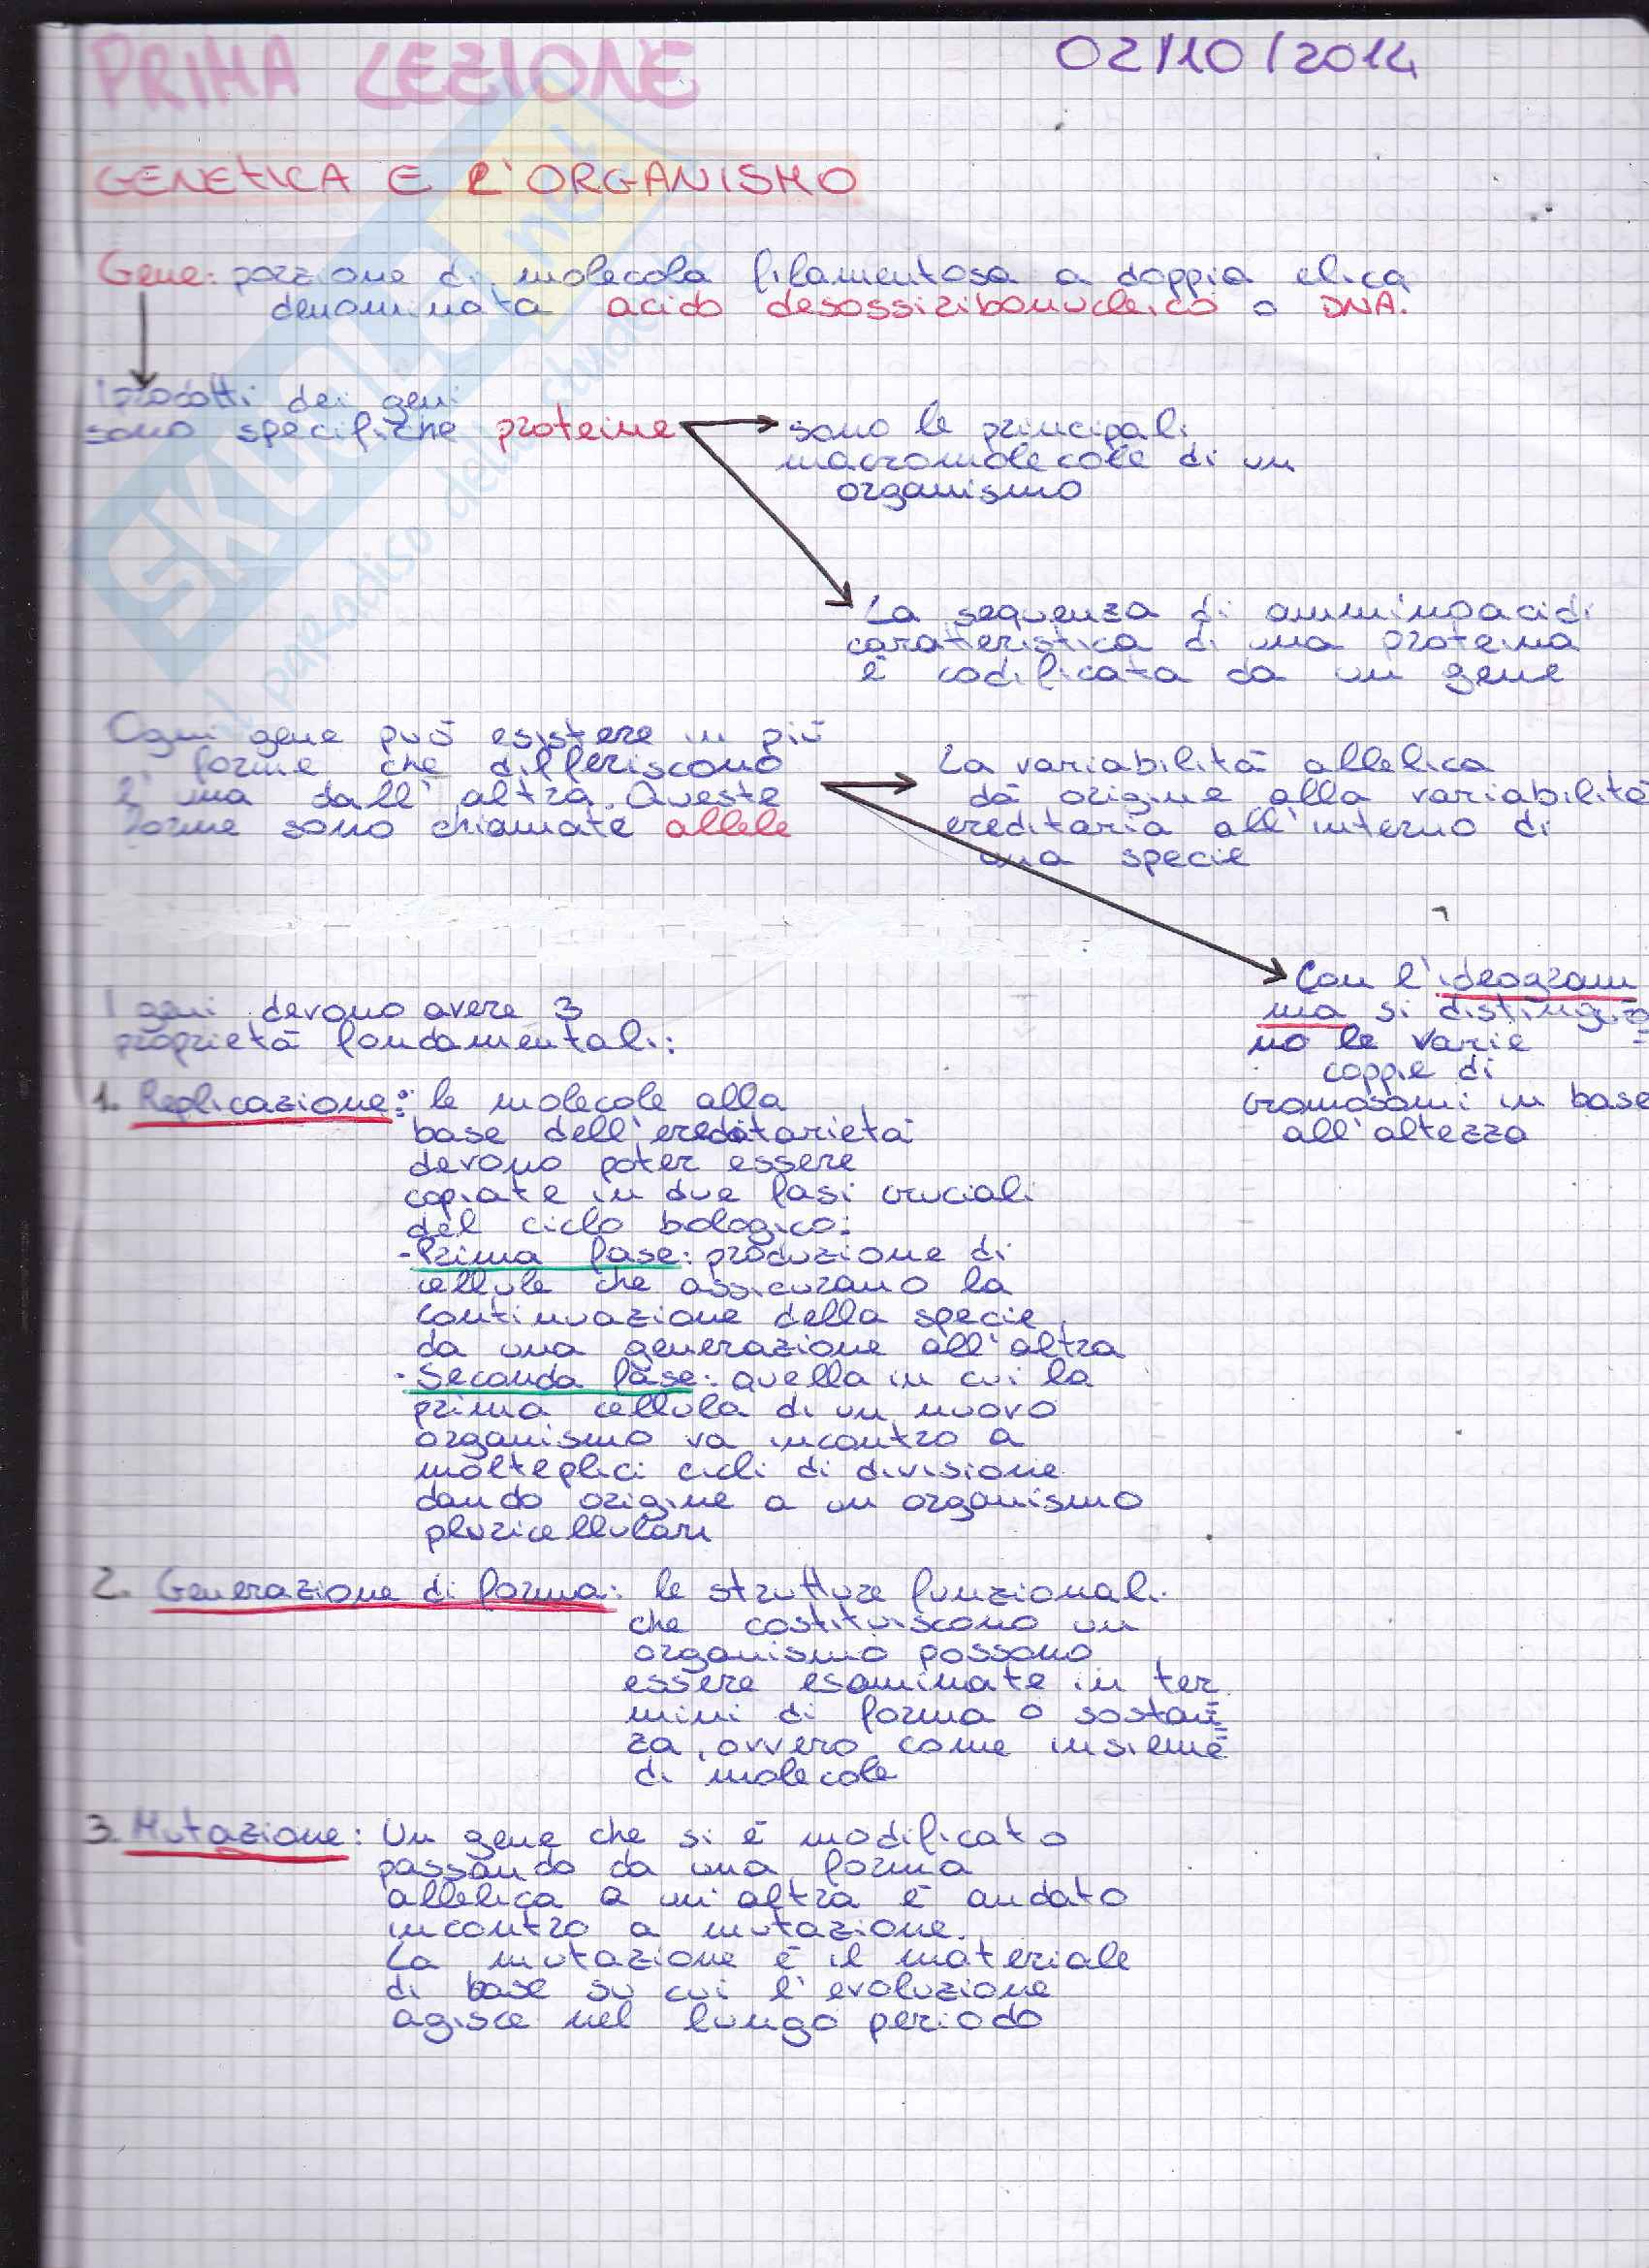 PRIMA LEZIONE
02/10/2014
GENETICA E L'ORGANISMO
Gene: porzione di molecola filamentosa a doppia elica
denominata acido desossiribonucleico o DNA.
I prodotti dei geni
sono specifiche proteine
sono le principali
macromolecole di un
organismo
La sequenza di amminoacidi
caratteristica di una proteina
è codificata da un gene
Ogni gene può esistere in più
forme che differiscono
l'una dall'altra. Queste
forme sono chiamate allele
La variabilità allelica
dà origine alla variabilità
ereditaria all'interno di
una specie
Con l'ideogram
ma si distinguo=
no le varie
coppie di
cromosomi in base
all'altezza
I geni devono avere 3
proprietà fondamentali:
1. Replicazione: le molecole alla
base dell'ereditarietà
devono poter essere
copiate in due fasi cruciali
del ciclo bologico:
-Prima fase: produzione di
cellule che assicurano la
continuazione della specie
da una generazione all'altra
-Seconda fase: quella in cui la
prima cellula di un nuovo
organismo va incontro a
molteplici cicli di divisione
dando origine a un organismo
pluricellulare
2. Generazione di forma: le strutture funzionali
che costituiscono un
organismo possono
essere esaminate in ter
mini di forma o sostan=
za, ovvero come insieme
di molecole
3. Mutazione: Un gene che si è modificato
passando da una forma
allelica a un'altra è andato
incontro a mutazione.
La mutazione è il materiale
di base su cui l'evoluzione
agisce nel lungo periodo
SKUOLA.net
il paradiso dello studente